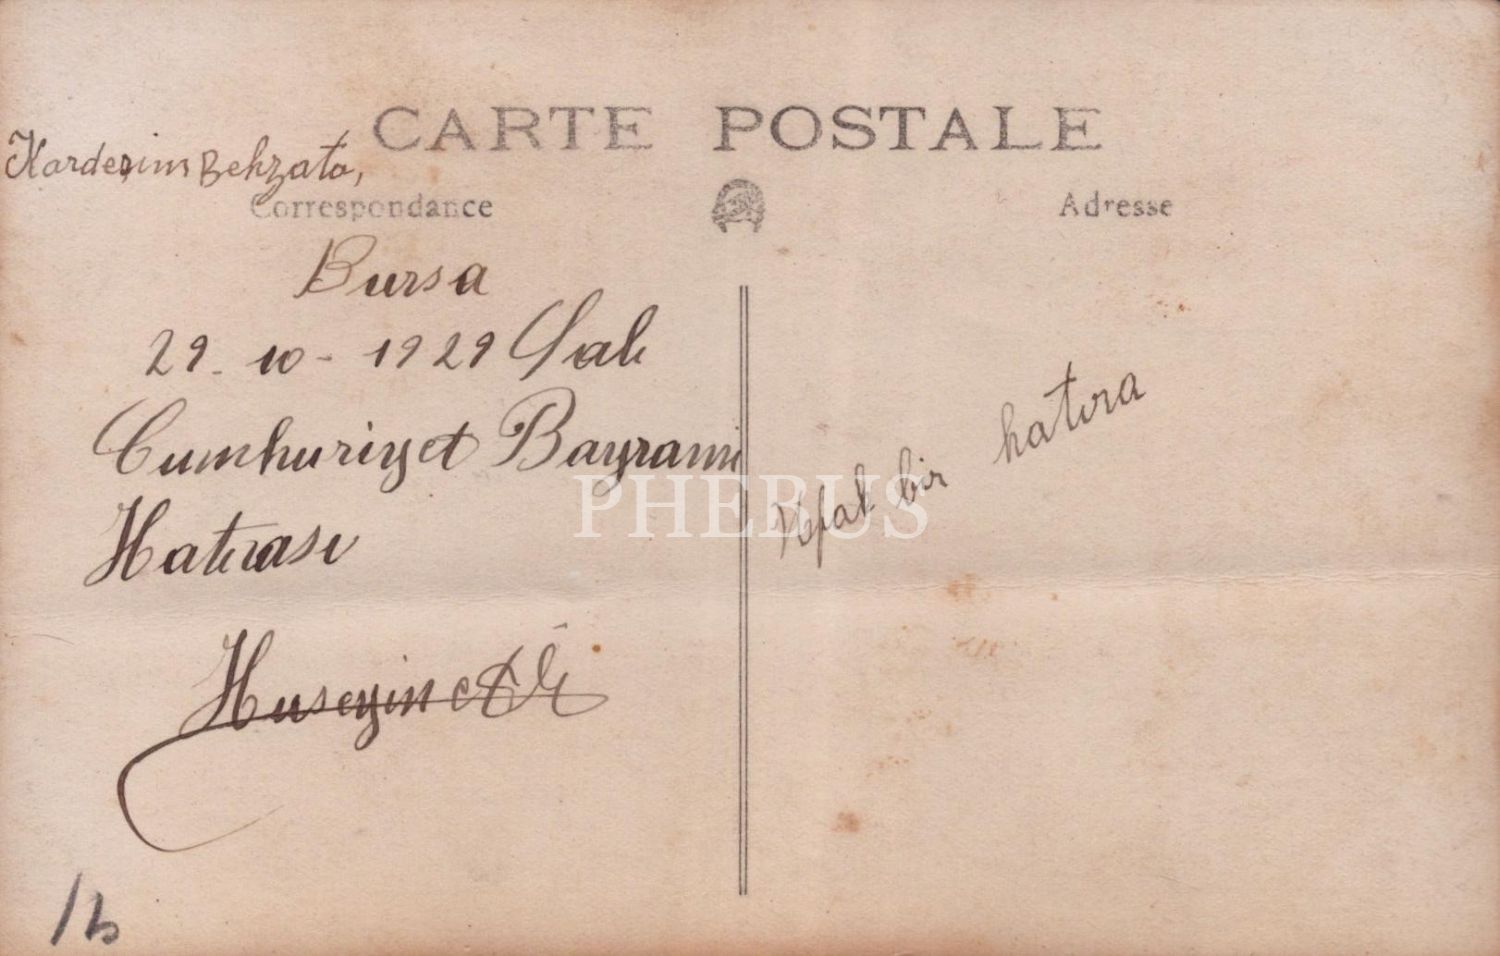 CARTE POSTALE
Kardeşim Behzata,
Correspondance
Adresse
Bursa
29-10-1929 Salı
Cumhuriyet Bayramı
Hatırası
Huseyin Ali
Ufak bir hatıra
PHEBUS